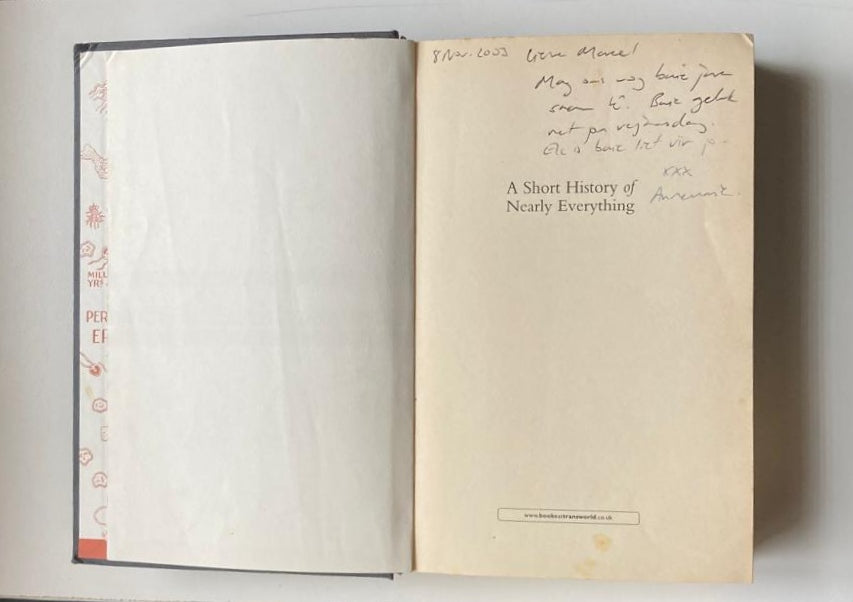 8 Nov. 2003 Lieve Marcel
Mag ons nog baie jare
saam lê. Baie geluk
met jou verjaarsdag.
Ek is baie lief vir jou
xxx
A Short History of
Nearly Everything
MILL
YRS
PER
EP
www.booksattransworld.co.uk